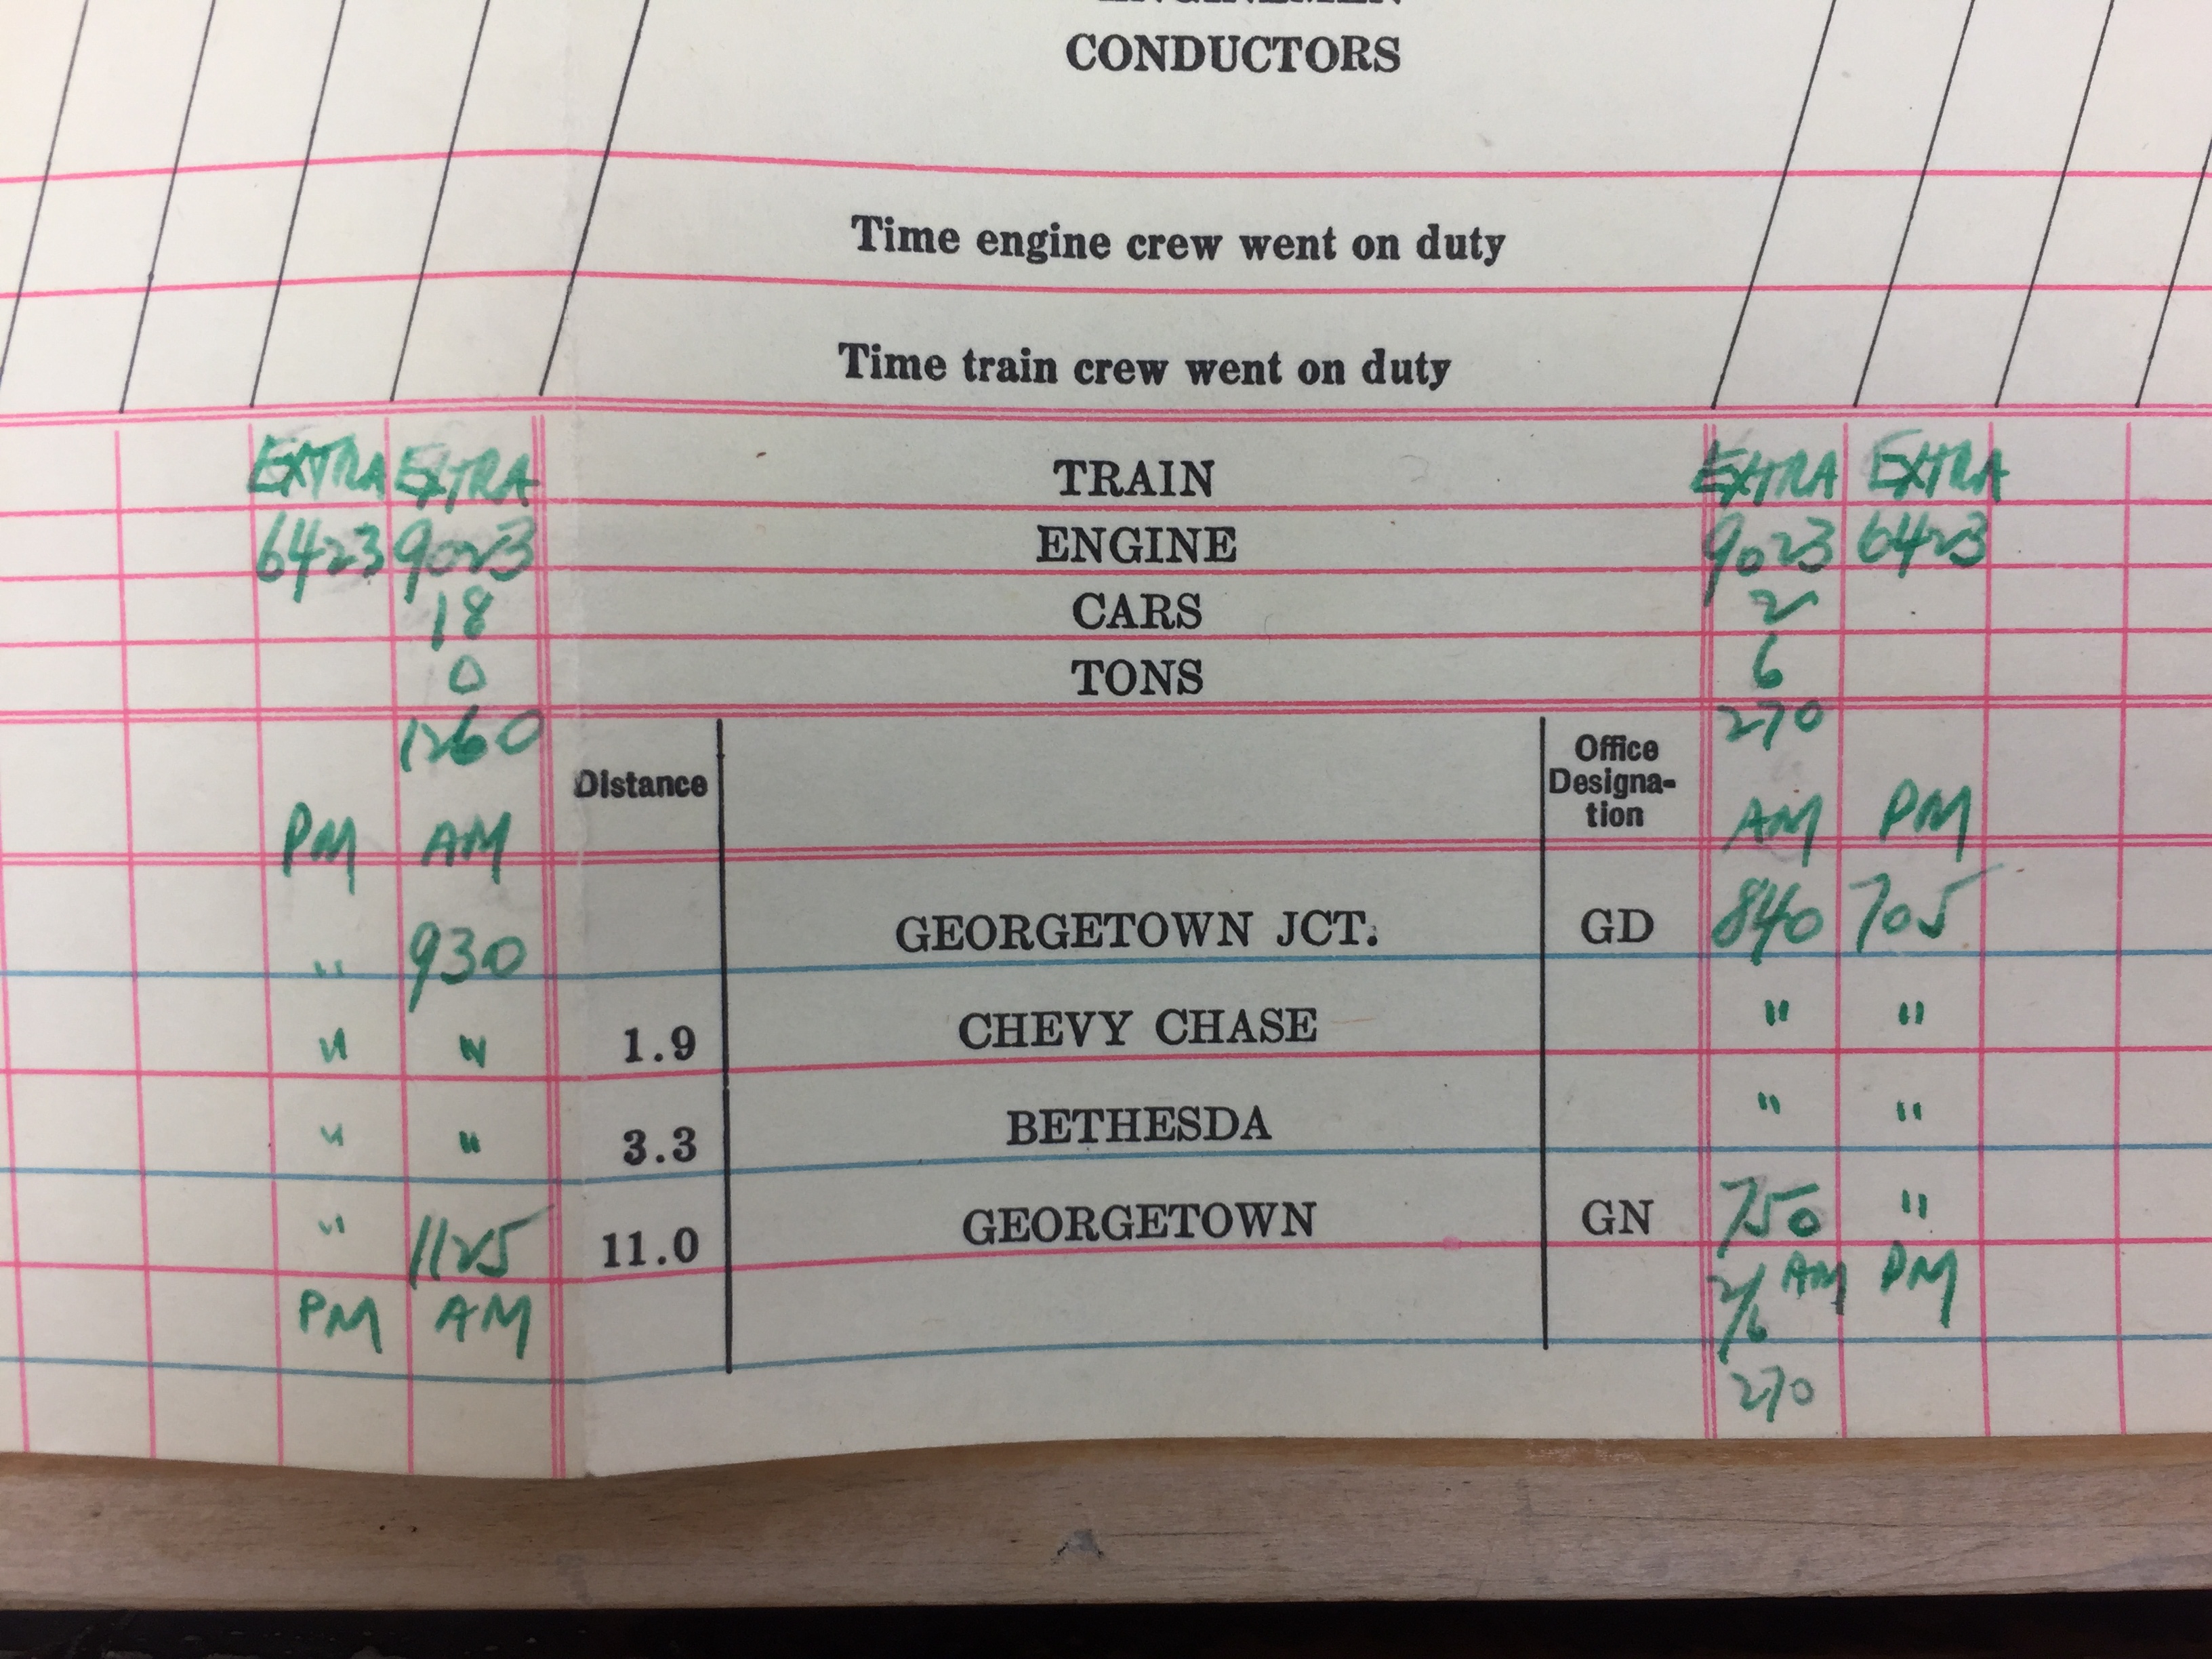 CONDUCTORS
Time engine crew went on duty
Time train crew went on duty
EXTRA EXTRA TRAIN EXTRA EXTRA
6423 9023 ENGINE 9023 6423
18 CARS 2
0 TONS 6
1260 270
Distance Office
Designa-
tion
PM AM AM PM
" 930 GEORGETOWN JCT. GD 840 705
" " 1.9 CHEVY CHASE " "
" " 3.3 BETHESDA " "
" 1125 11.0 GEORGETOWN GN 750 "
PM AM 2/6 AM PM
270